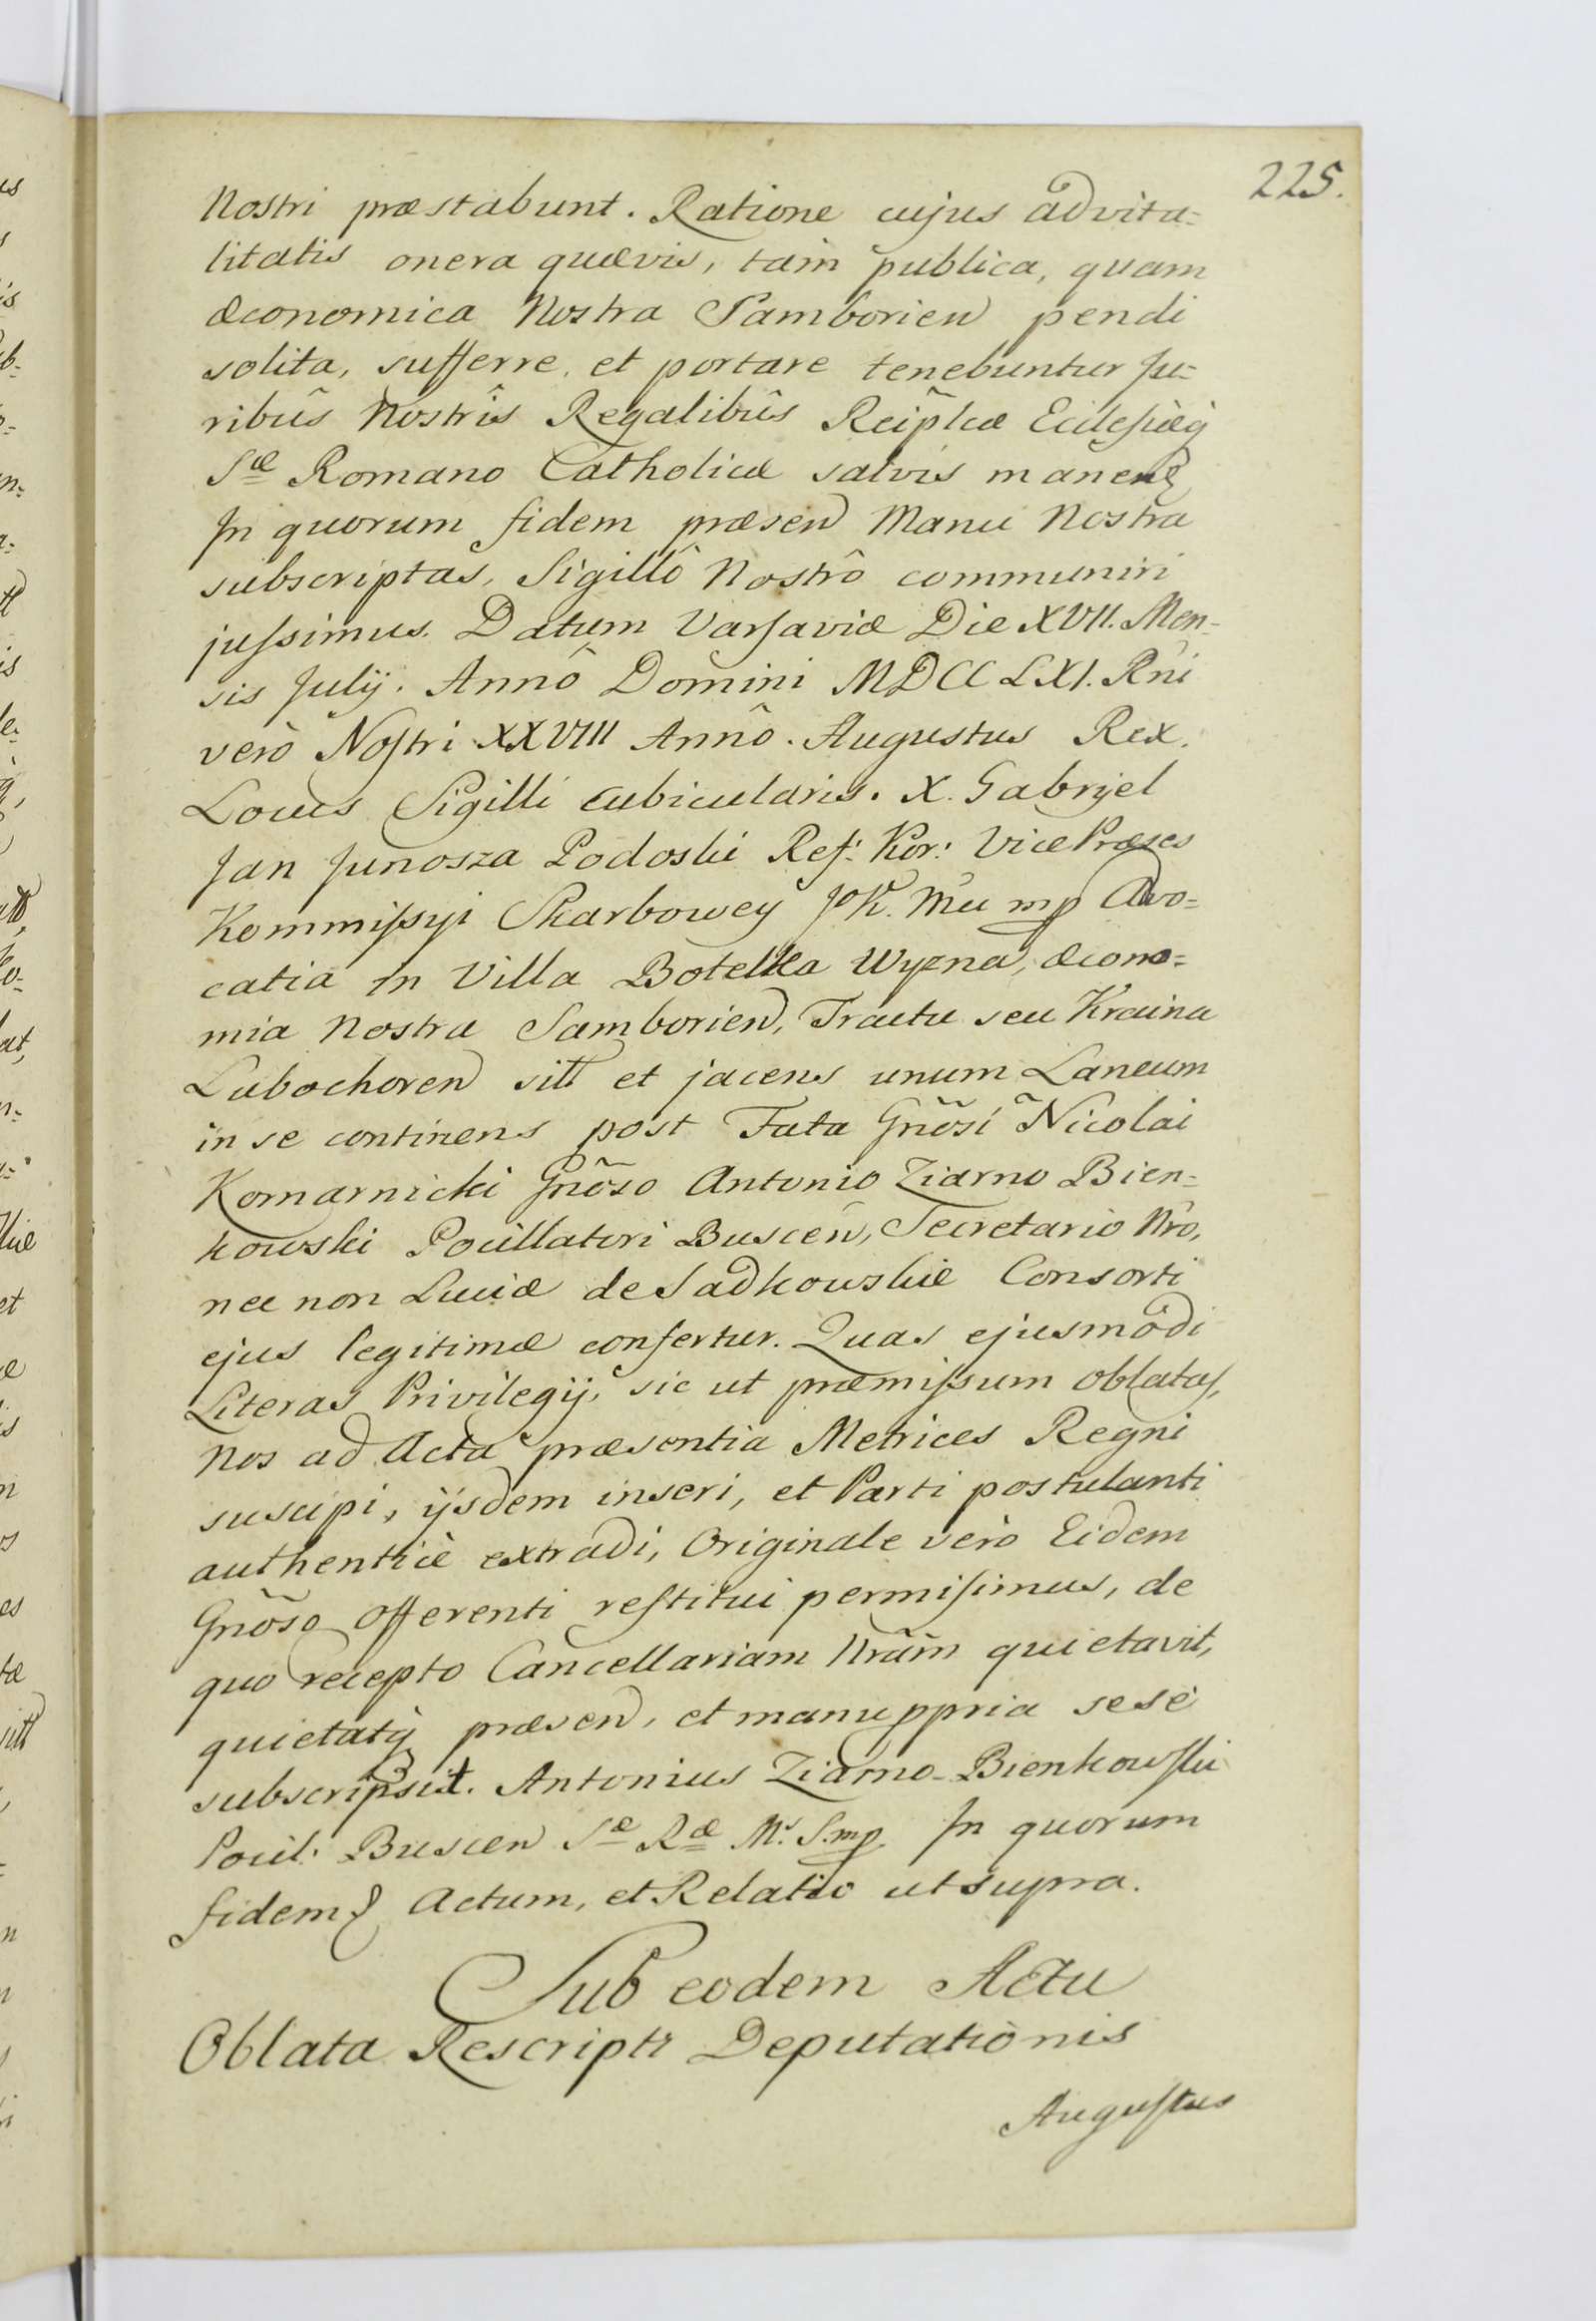 225.
Nostri præstabunt. Ratione cujus advita=
litatis onera quævis, tam publica, quam
œconomica Nostra Samborien pendi
solita, sufferre, et portare tenebuntur Ju=
ribûs Nostrîs Regalibûs Reiplcæ Ecclesiæq
Sæ Romano Catholicæ salvis manen
In quorum fidem præsen Manu Nostra
subscriptas, Sigillô Nostrô communiri
jussimus. Datum Varsaviæ Die XVII. Men=
sis Julij. Annô Domini MDCCLXI. Rni
verò Nostri XXVIII Annô. Augustus Rex.
Locus Sigilli cubicularis. X. Gabryel
Jan Junosza Podoski Ref: Kor: Vice Præses
Kommissyi Skarbowey JK. Mci mp Advo=
catia in Villa Botelka Wyzna, œcono=
mia Nostra Samborien, Tractu seu Kraina
Lubochoren sitt et jacens unum Laneum
in se continens post Fata Gnõsi Nicolai
Komarnicki Gnõso Antonio Ziarno Bien=
kowski Pocillatori Buscen, Secretario Nro,
nec non Luciæ de Sadkowskie Consorti
ejus legitimæ confertur. Quas ejusmodi
Literas Privilegij, sic ut præmissum oblatas,
Nos ad Acta præsentia Metrices Regni
suscipi, ijsdem inseri, et Parti postulanti
authenticè extradi, Originale verò Eidem
Gnõso Offerenti restitui permisimus, de
quo recepto Cancellariam Nrãm quietavit,
quietatq præsen, et manu ppria sese
subscripsit. Antonius Ziarno-Bienkowski
Pocil: Buscen Sæ Ræ Ms S. mp In quorum
fidem Actum, et Relatio ut supra.
Sub eodem Actu
Oblata Rescripti Deputationis
Augustus